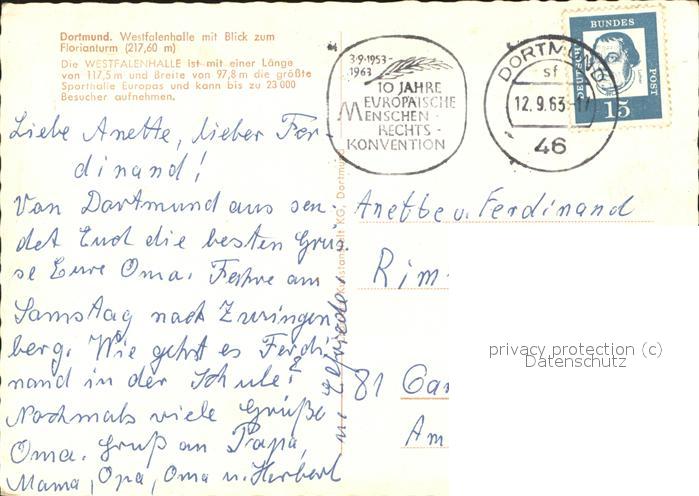 Dortmund. Westfalenhalle mit Blick zum
Florianturm (217,60 m)
Die WESTFALENHALLE ist mit einer Länge
von 117,5 m und Breite von 97,8 m die größte
Sporthalle Europas und kann bis zu 23 000
Besucher aufnehmen.
3·9·1953-
1963
10 JAHRE
EUROPÄISCHE
MENSCHEN-
RECHTS-
KONVENTION
DORTMUND
sf
12.9.63-17
46
DEUTSCHE
BUNDES
POST
15
Liebe Anette, lieber Fer-
dinand!
Von Dortmund aus sen-
det Euch die besten Grüs-
se Eure Oma. Fahre am
Samstag nach Zwingen
berg. Wie geht es Ferdi
nand in der Schule?
Nochmals viele Grüße
Oma. Gruß an Papa,
Mama, Opa, Oma u. Herbert
u. Elfriede.
Kunstanstalt KG, Dortmund
Anette u. Ferdinand
Rim
81 Gar
Am
privacy protection (c)
Datenschutz